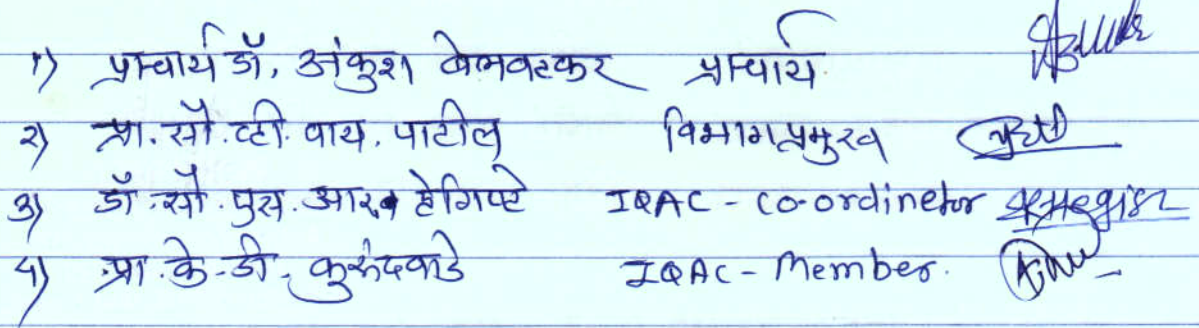 १) प्राचार्य डॉ. अंकुश बेलवटकर प्राचार्य
२) प्रा. सौ. व्ही. वाय. पाटील विभागप्रमुख
३) डॉ. सौ. एस. आर. हेगिष्टे IQAC - co-ordinetor
४) प्रा. के. डी. कुरुंदवाडे IQAC - Member.